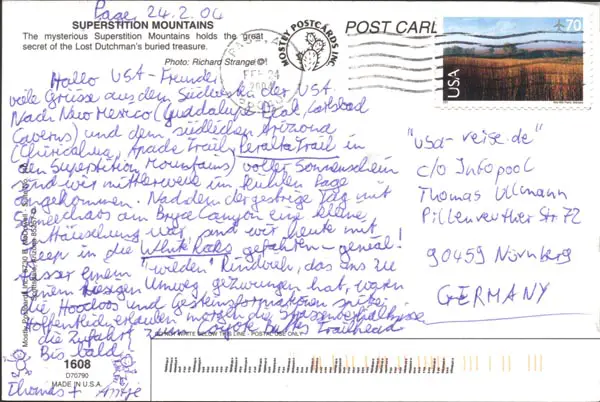 Page, 24.2.04
SUPERSTITION MOUNTAINS
The mysterious Superstition Mountains holds the great
secret of the Lost Dutchman's buried treasure.
Photo: Richard Strange ©!
MOSTEY POSTCARDS INC
POST CARD
70
USA
FEB 24
Hallo USA-Freunde,
viele Grüsse aus dem Südwesten der USA.
Nach New Mexico (Guadalupe Peak, Carlsbad
Caverns) und dem südlichen Arizona
(Chiricahua, Apache Trail, Peralta Trail in
den Superstition Mountains) voller Sonnenschein
sind wir mittlerweile im kühlen Page
angekommen. Nachdem der gestrige Tag mit
Schneechaos am Bryce Canyon eine kleine
Enttäuschung war, sind wir heute mit
Jeep in die White Rocks gefahren - genial!
Ausser einem "wilden" Rindvieh, das uns zu
einem riesigen Umweg gezwungen hat, waren
die Hoodoos und Gesteinsformationen spitze!
Hoffentlich erlauben morgen die Strassenverhältnisse
die Zufahrt zum Coyote Buttes Trailhead.
Bis bald
Thomas + Antje
"usa-reise.de"
c/o Infopool
Thomas Ullmann
Pillenreuther Str. 72
90459 Nürnberg
GERMANY
WRITE BELOW THIS LINE - POSTAL USE ONLY
1608
D70790
MADE IN U.S.A.